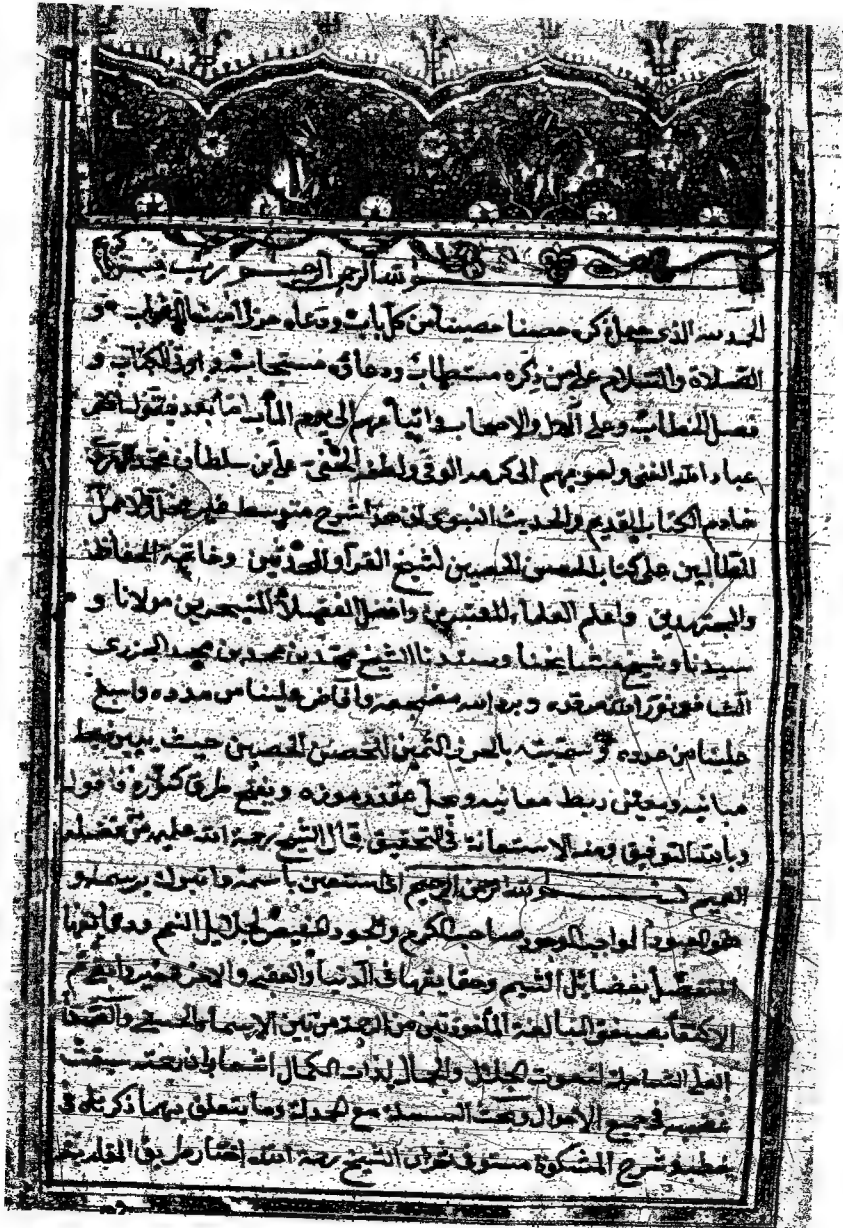 بسم الله الرحمن الرحيم رب
الحمد لله الذي جعل ذكره حصنا حصينا من كل باب ودعاه حرزا
الصلاة والسلام على من ذكره مستطاب ودعاؤه مستجاب واوتي الكتاب و
فصل الخطاب وعلى الآل والاصحاب واتباعهم الى يوم المآب اما بعد فيقول افقر
عباد الله الغني واحوجهم الى كرمه الوفي ولطفه الخفي علي بن سلطان محمد الهروي
خادم الكتاب القديم والحديث النبوي ان هذا شرح متوسط غير مخل ولا ممل
للطالبين على كتاب الحصن الحصين لشيخ القراء والمحدثين وخاتمة الحفاظ
والمجتهدين واعلم العلماء المعتبرين وافضل الفضلاء المتبحرين مولانا و
سيدنا وشيخ مشايخنا وسندنا الشيخ محمد بن محمد بن محمد الجزري
الشافعي نور الله مرقده وبرد الله مضجعه وافاض علينا من مدده واسبغ
علينا من عدده وسميته بالحرز الثمين للحصن الحصين حيث يبين ضبط
مبانيه ويعتني ربط معانيه ويحل عقد رموزه ويفتح طرق كنوزه فاقول
وبالله التوفيق ومنه الاستعانة في التحقيق قال الشيخ رحمة الله عليه من فضله
العميم بسم الله الرحمن الرحيم اي استعين باسمه واتبرك برسمه و
هو المعبود الواجب الوجود صاحب الكرم والجود المفيض لجلائل النعم ودقائقها
المتفضل بفضائل الشيم وحقايقها في الدنيا والعقبى والآخرة خير وابقى ثم
الاكتفاء بصيغتي المبالغة المأخوذتين من الرحمة من بين الاسماء الحسنى والصفات
العلى الشاملة لنعوت الجلال والجمال لذات الكمال اشعار بان رحمته سبقت
غضبه في جميع الاحوال وبحث البسملة مع الحمدلة وما يتعلق بهما ذكرناه في
شرح المشكوة مستوفى ثم ان الشيخ رحمة الله اختار طريق